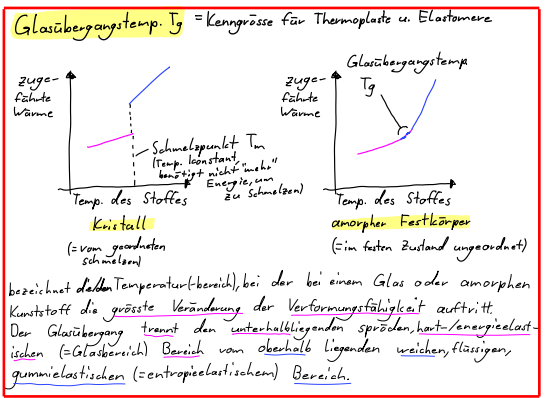 Glasübergangstemp. Tg = Kenngrösse für Thermoplaste u. Elastomere
zuge-
führte
Wärme
Schmelzpunkt Tm
(Temp. konstant,
benötigt nicht "mehr"
Energie, um
zu schmelzen)
Temp. des Stoffes
Kristall
(=vom geordneten
schmelzen)
Glasübergangstemp
Tg
zuge-
führte
Wärme
Temp. des Stoffes
amorpher Festkörper
(=im festen Zustand ungeordnet)
bezeichnet Temperatur(-bereich), bei der bei einem Glas oder amorphen
Kunststoff die grösste Veränderung der Verformungsfähigkeit auftritt.
Der Glasübergang trennt den unterhalbliegenden spröden, hart-/energieelast-
ischen (=Glasbereich) Bereich vom oberhalb liegenden weichen, flüssigen,
gummielastischen (=entropieelastischem) Bereich.